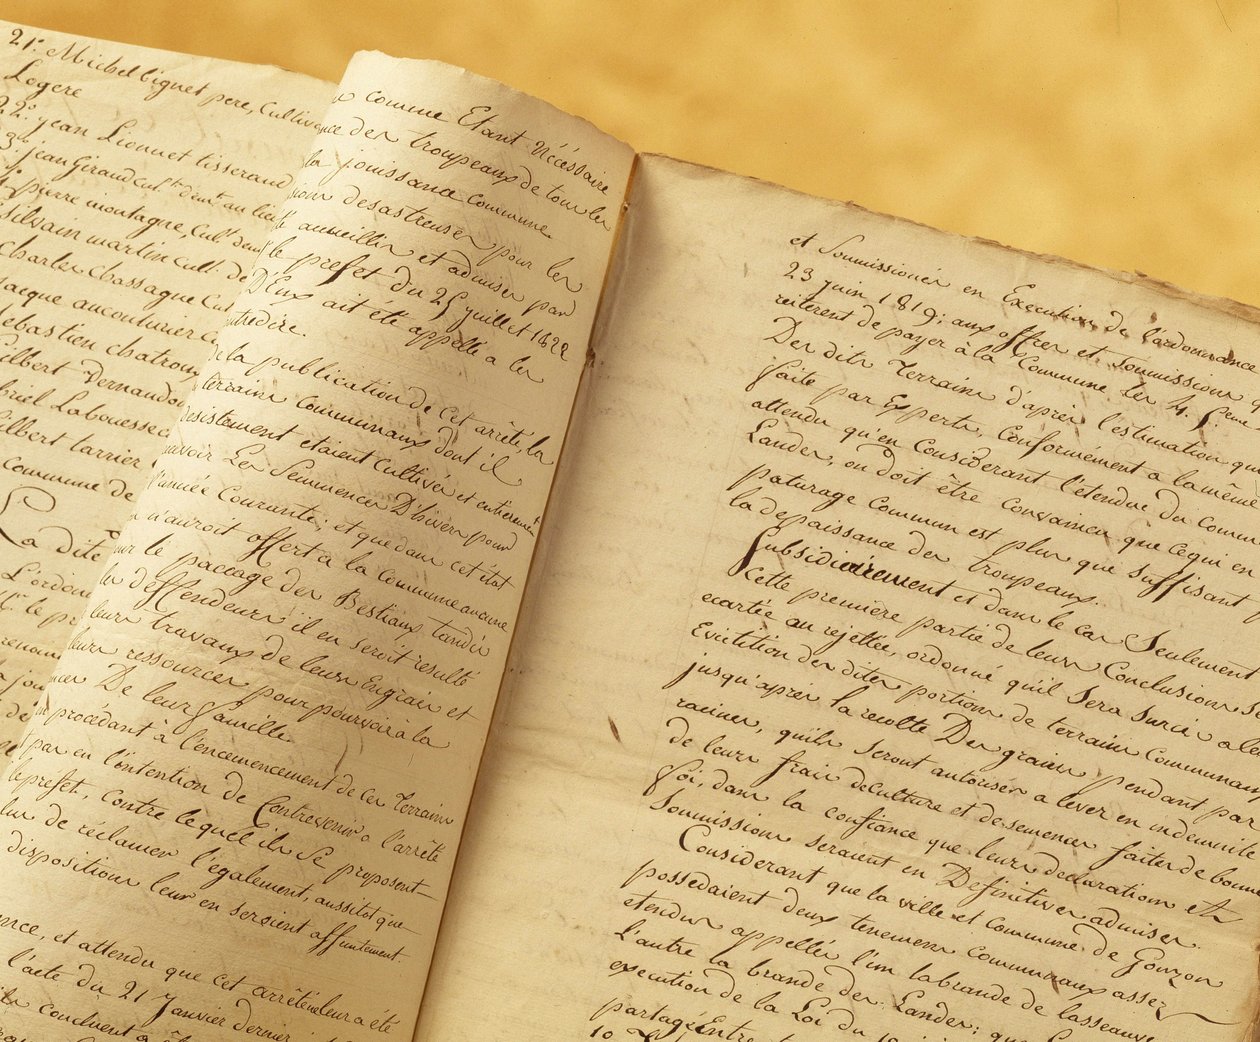 21.° Michel bignet pere, Cultiv
Logere
22.° jean Lionnet tisserand
jean Giraud cult. demt. au lieu
pierre montagne, Cult. dem
Silvain martin cult. de
Charles Chassagne Cu
Jacque aucouturier C
Sebastien chatrou
Gilbert Dernaudo
briel Labouesse c
Gilbert tarrier
commune de
La dite
L'ordon
le p
comme Etant Nécéssaire
ce des troupeaux de tous les
la jouissance commune
desastreuses pour les
accueillir et admiser par
le prefet du 25 juillet 1822
D'Eux ait été appellé a les
tredire.
de la publication de cet arrêté, la
terrains communaux dont il
desistement etaient Cultivés et entierement
avoir Les Semences D'hiver pour
l'année Courante; et que dans cet état
n'auroit offert a la commune aucune
le paccage des Bestiaux tandis
les deffendeurs il en seroit resulté
leurs travaux de leurs Engrais et
leurs ressources pour pourvoir à la
De leur famille.
procédant à l'encemencement de ces Terrains
par eu l'intention de Contrevenir a l'arrêté
le prefet, contre lequel ils se proposent
de réclamer l'égalément, aussitot que
dispositions leur en seroient
nce, et attendu que cet arrêté leur a été
l'acte du 21 Janvier dernier
concluent
et Soumissionés en Execution de l'ordonnance
23 juin 1819; aux offres et Soumissions
réiterent de payer à la Commune les 4.
Des dits Terrains d'après l'estimation qui
faite par Experts, Conformément a la même
attendu qu'en Considerant l'étendue du comm
Landes, on doit être convaincu que ce qui en
paturage commun est plus que Suffisant
la depaissance des troupeaux.
Subsidiairement et dans le cas Seulement
Cette premiere partie de leurs Conclusions se
ecartée ou rejettée, ordonné qu'il Sera Surcis a le
Evittion des dites portions de terrains Communaux
jusqu'apres la recolte Des grains pendant par
racines, quils seront autorisés a lever en indemnité
de leurs frais deculture et de semences faites de bonne
foi, dans la confiance que leurs declarations et
Soumissions seraient en Definitives admises.
Considerant que la ville et commune de Gouzon
possedaient deux tenemens communaux assez
etendus appellés l'un labrande de lasseaux
l'autre la brande des Landes; que
execution de la Loi du 10
partagé Entre
10